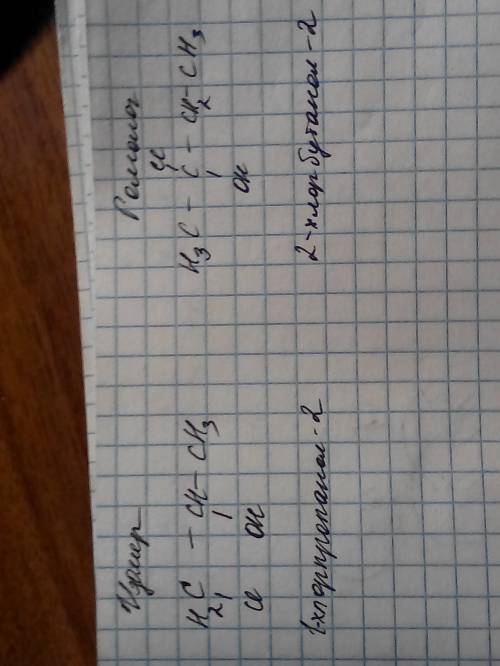 Изомер
H₂C – CH – CH₃
Cl OH
1-хлорпропанол-2
Гомолог
Cl
H₃C – C – CH₂ – CH₃
OH
2-хлорбутанол-2